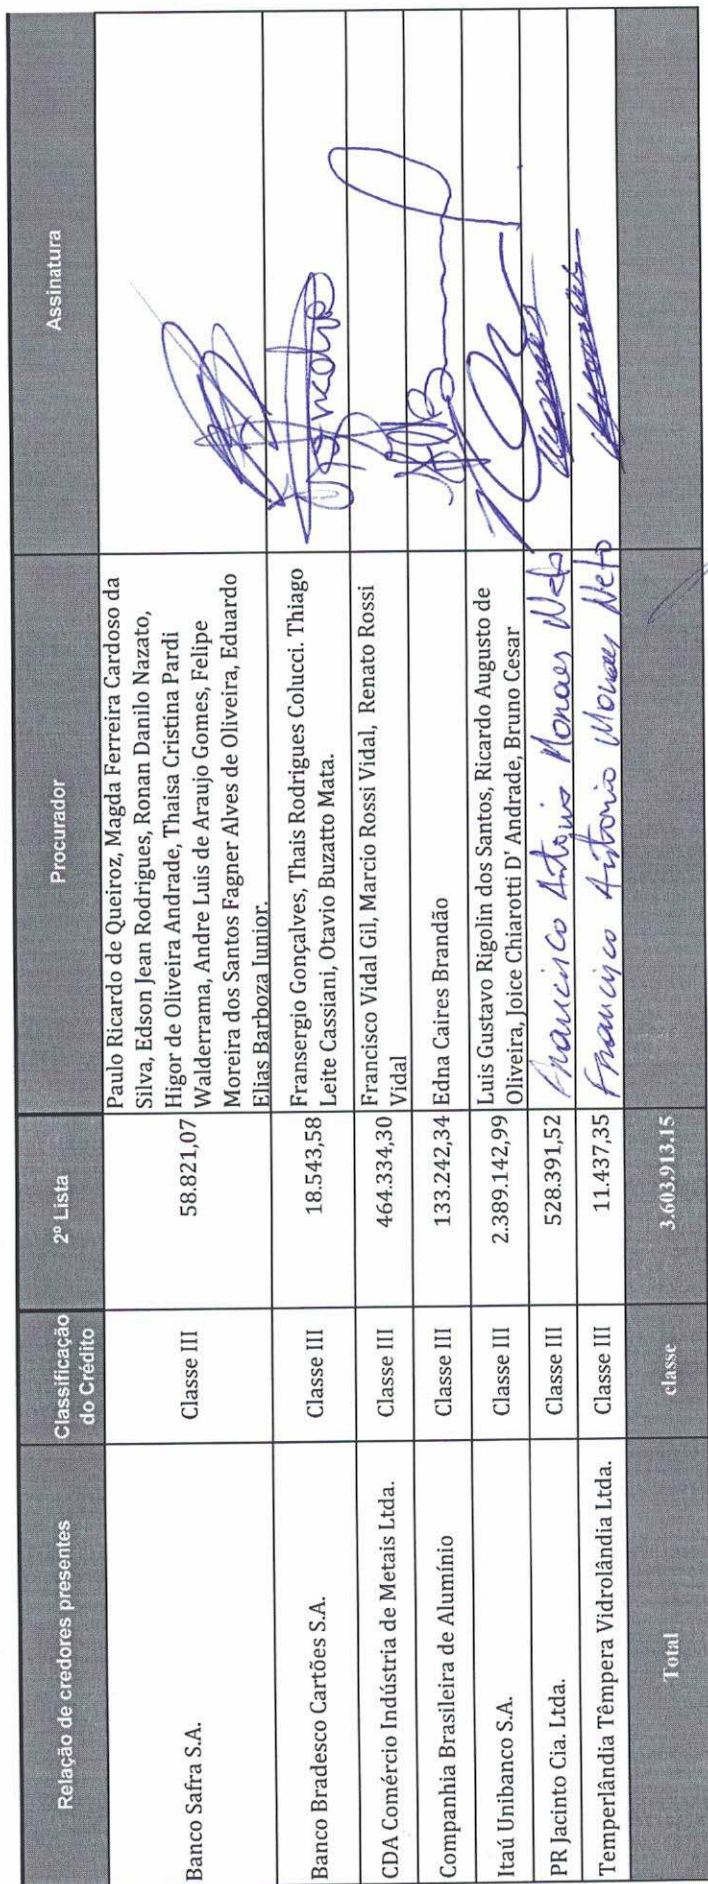 Relação de credores presentes
Classificação
do Crédito
2º Lista
Procurador
Assinatura
Banco Safra S.A.
Classe III
58.821,07
Paulo Ricardo de Queiroz, Magda Ferreira Cardoso da
Silva, Edson Jean Rodrigues, Ronan Danilo Nazato,
Higor de Oliveira Andrade, Thaisa Cristina Pardi
Walderrama, Andre Luis de Araujo Gomes, Felipe
Moreira dos Santos Fagner Alves de Oliveira, Eduardo
Elias Barboza Junior.
Banco Bradesco Cartões S.A.
Classe III
18.543,58
Fransergio Gonçalves, Thais Rodrigues Colucci. Thiago
Leite Cassiani, Otavio Buzatto Mata.
CDA Comércio Indústria de Metais Ltda.
Classe III
464.334,30
Francisco Vidal Gil, Marcio Rossi Vidal, Renato Rossi
Vidal
Companhia Brasileira de Alumínio
Classe III
133.242,34
Edna Caires Brandão
Itaú Unibanco S.A.
Classe III
2.389.142,99
Luis Gustavo Rigolin dos Santos, Ricardo Augusto de
Oliveira, Joice Chiarotti D' Andrade, Bruno Cesar
PR Jacinto Cia. Ltda.
Classe III
528.391,52
Francisco Antonio Moraes Neto
Temperlândia Têmpera Vidrolândia Ltda.
Classe III
11.437,35
Francisco Antonio Moraes Neto
Total
classe
3.603.913.15